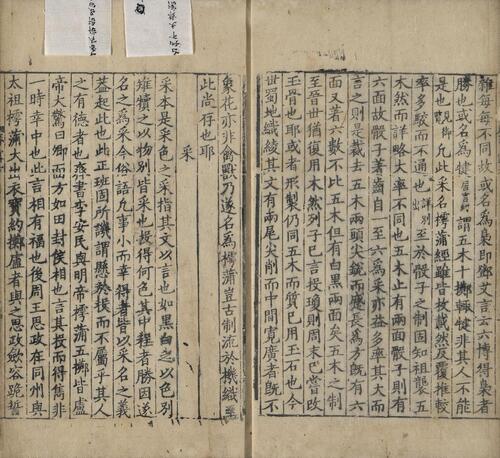 雉每每不同故或名為梟即鄧艾言云六博得梟者
勝也或名為犍居言切謂五木十擲輒犍非其人不能
是也凡此采名樗蒲經雖皆故載然反覆推較
率多駮而不通也詳別至於骰子之制固知祖襲五
木然而詳略大率不同也五木止有兩面骰子則有
六面故骰子著齒自一至六為采亦益多率其大而
言之則是裁去五木兩頭尖銳而蹙長為方既有六
面又著六數不比五木但有白黑兩面矣五木之制
至晉世猶復用木然列子巳言投瓊則周末巳嘗改
玉骨也耶或者形製仍同五木而質巳用玉石也今
世蜀地織綾其文有兩尾尖削而中間寬廣者既不
象花亦非禽獸乃遂名為樗蒲豈古制流於機織至
此尚存也耶
采
采本是采色之采指其文以言也如黑白之以色別
雉犢之以物別皆采也投得何色其中程者勝因遂
名之為采今俗語凡事小而幸得者皆以采名之義
蓋起此也此正班固所譏謂懸於投而不屬乎其人
之有德者也書李安民與明帝樗蒲五擲皆盧
帝大驚曰卿面方如田封侯相也言其投而得雋非
一時幸中也此言相有福也後周王思政在同州與
太祖樗蒲大出衣寶約擲盧者與之思政斂容跪誓